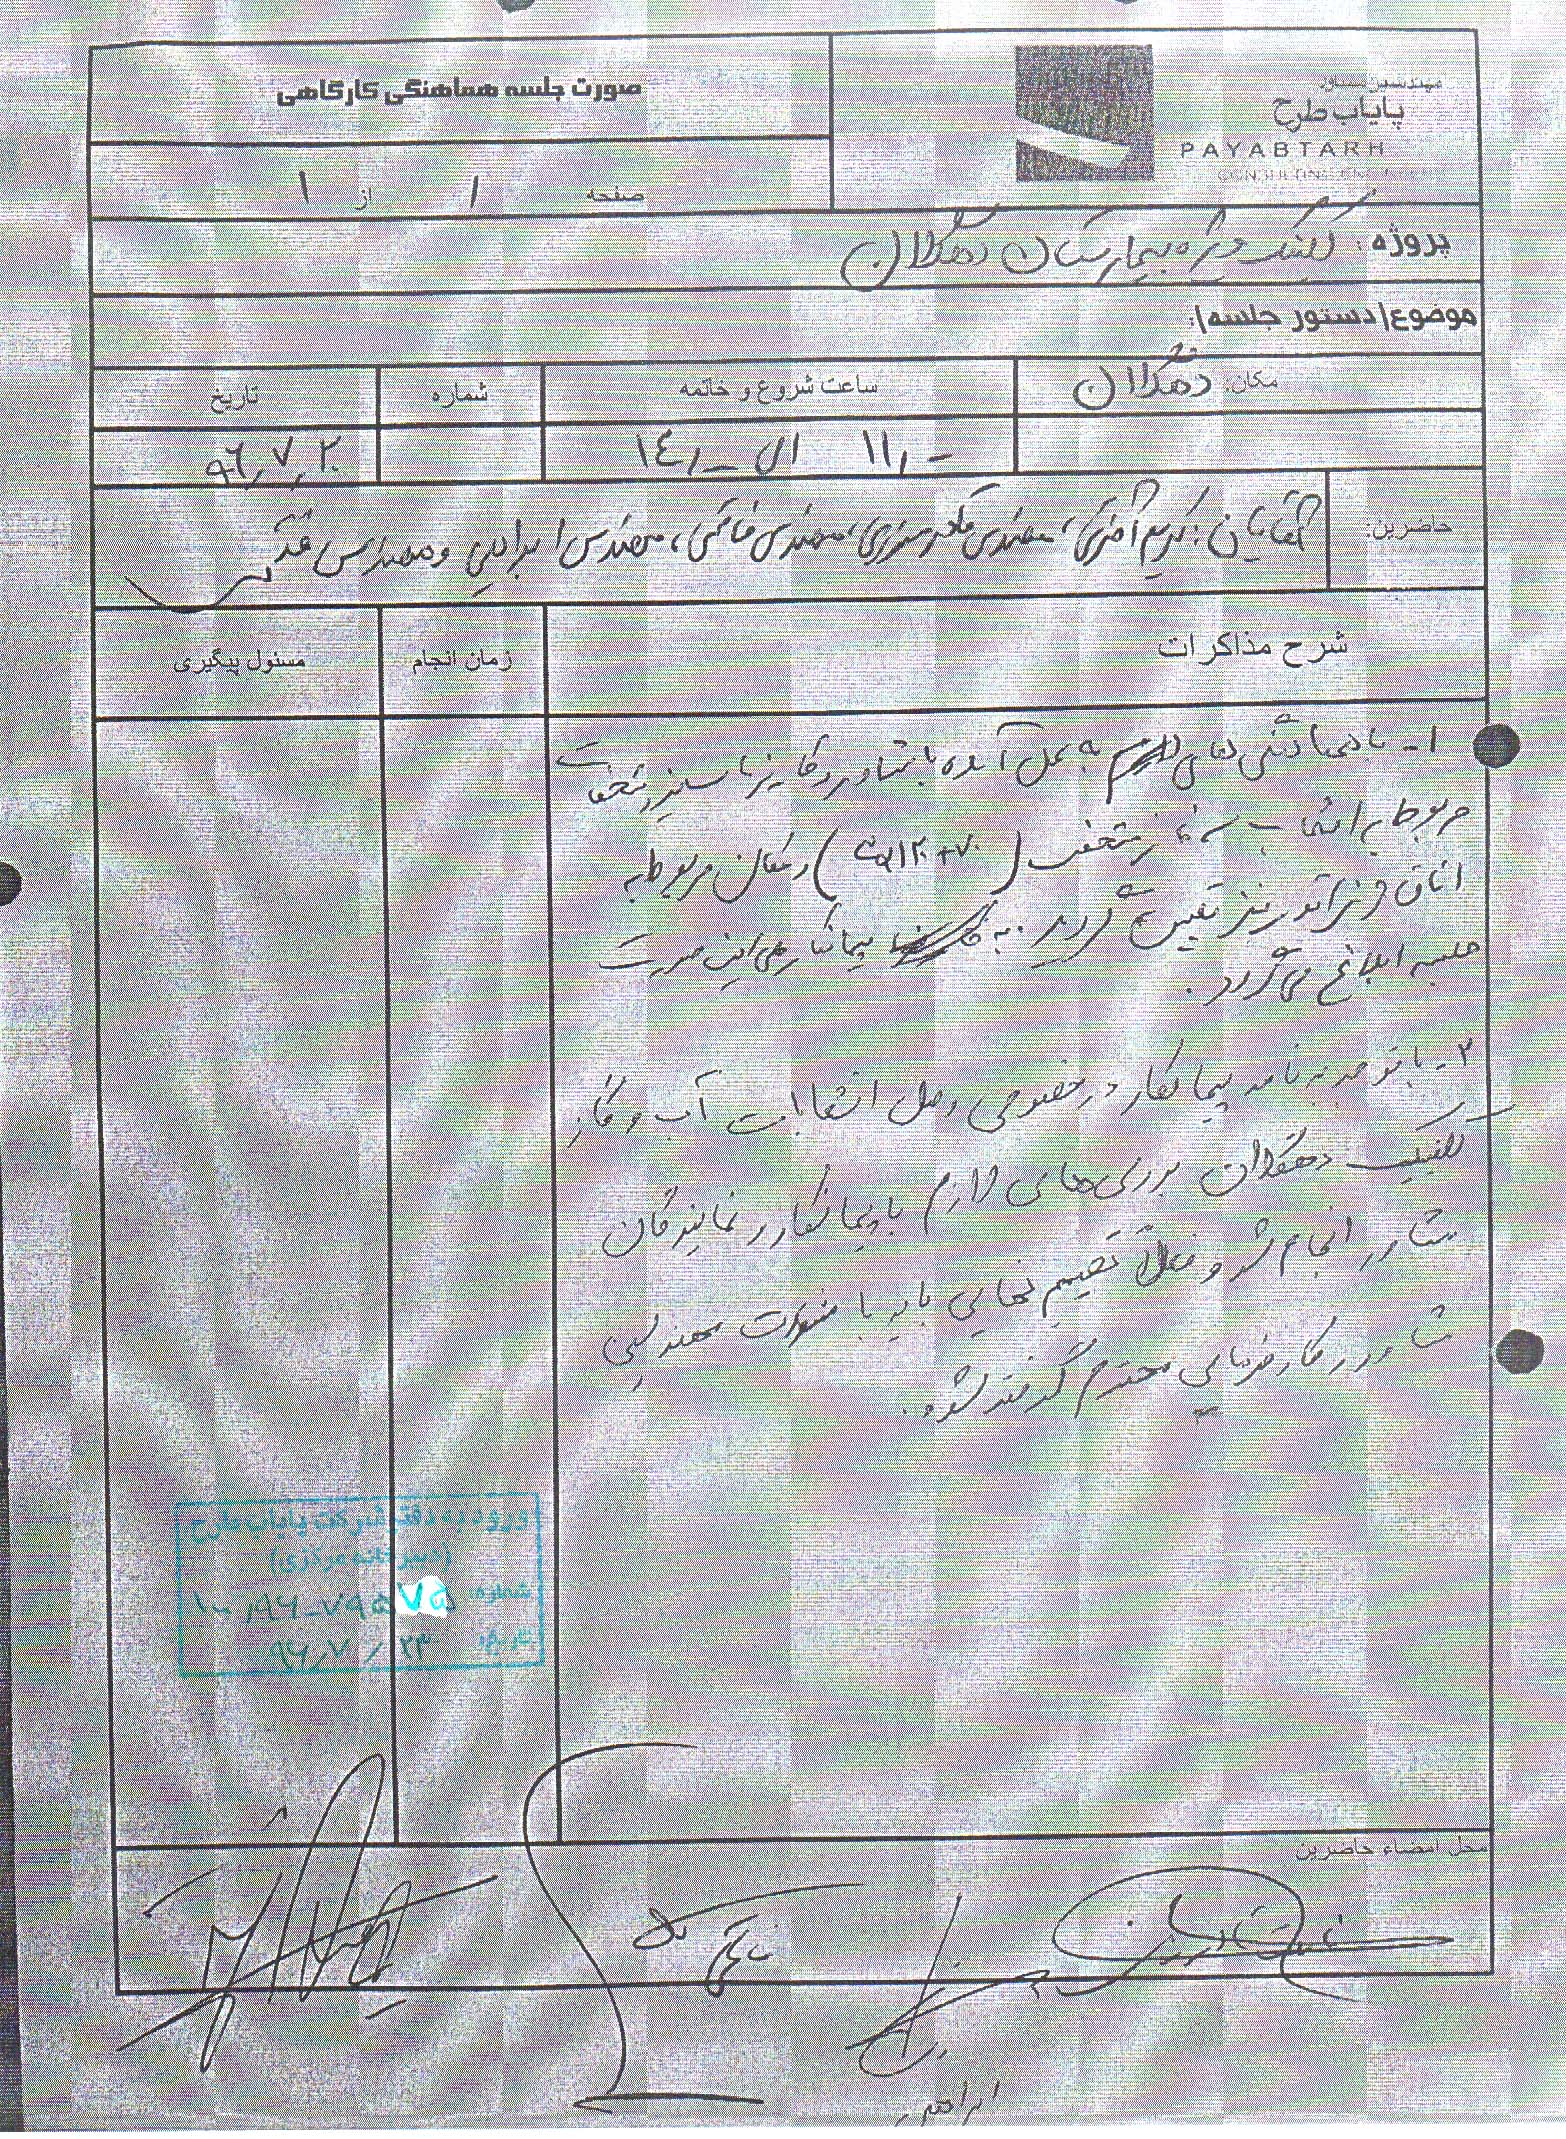 مهندسین مشاور
پایاب طرح
PAYABTARH
CONSULTING ENGINEERS
صورت جلسه هماهنگی کارگاهی
صفحه ۱ از ۱
پروژه: کلینیک ویژه بیمارستان دهگلان
موضوع(دستور جلسه):
مکان: دهگلان
ساعت شروع و خاتمه
شماره
تاریخ
۱۱٫- الی ۱۴٫-
۹۶٫۷٫۲۰
حاضرین:
آقایان: مهندس مهندس مهندس ابراهیمی و مهندس
شرح مذاکرات
زمان انجام
مسئول پیگیری
۱- با هماهنگی های به عمل آمده با مشاور
مربوط به مشخصات و مکان مربوط به
اتاق نیز تعیین گردید. به پیمانکار این صورت
جلسه ابلاغ می گردد.
۲- با توجه به نامه پیمانکار در خصوص وصل انشعابات آب و گاز
کلینیک دهگلان بررسی های لازم با پیمانکار و نمایندگان
مشاور انجام شد و فعلاً تصمیم نهایی باید با مشورت مهندسین
مشاور و کارفرمای محترم گرفته شود.
ورود به دفتر شرکت پایاب طرح
(دبیرخانه مرکزی)
شماره:
تاریخ: ۹۶٫۷٫۲۳
محل امضاء حاضرین